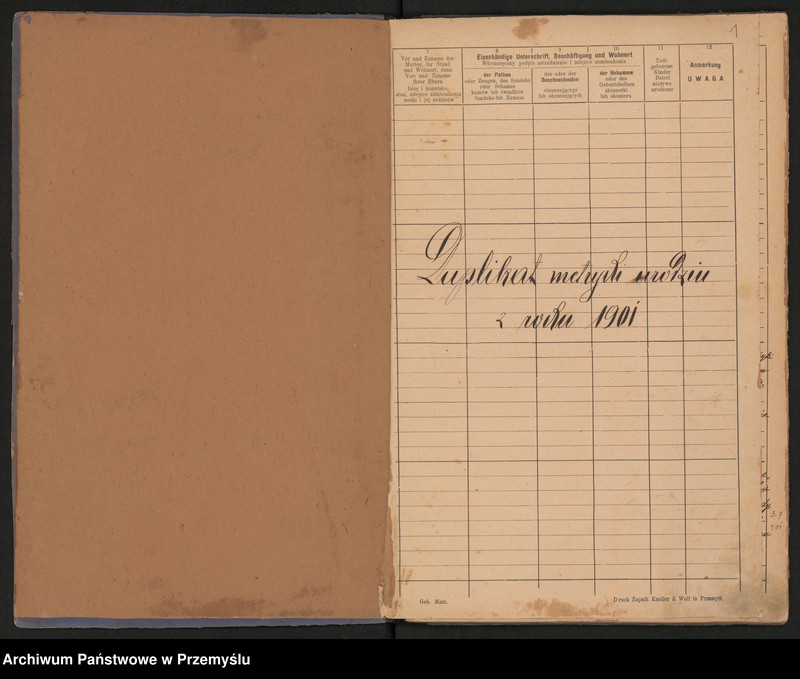 1
7
8
9
10
11
12
Vor und Zuname der
Mutter, ihr Stand
und Wohnort, dann
Vor- und Zuname
ihrer Eltern
Imię i nazwisko,
stan, miejsce zamieszkania
matki i jej rodziców
Eigenhändige Unterschrift, Beschäftigung und Wohnort
Własnoręczny podpis zatrudnienie i miejsce zamieszkania
der Pathen
oder Zeugen, des Sandeks
oder Schames
kumów lub świadków
Sandeka lub Szamesa
des oder der
Beschneidenden
obrzezującego
lub obrzezujących
der Hebamme
oder des
Geburtshelfers
akuszerki
lub akuszera
Todt
geborene
Kinder
Dzieci
nieżywo
urodzone
Anmerkung
UWAGA
Duplikat metryk urodzin
z roku 1901
Geb. Matr.
Druck Żupnik Knoller & Wolf in Przemyśl.
Archiwum Państwowe w Przemyślu